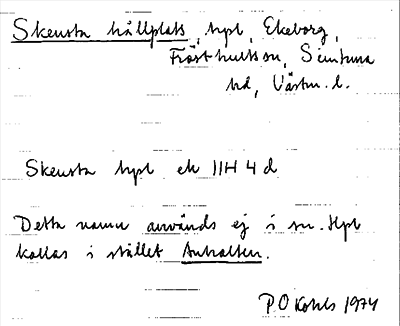 Skensta hållplats, hpl, Ekeborg,
Frösthults sn, Simtuna
hd, Västm. l.
Skensta hpl ek 11H 4 d
Detta namn används ej i sn. Hpl
kallas i stället Anhalten.
P O Kohls 1974